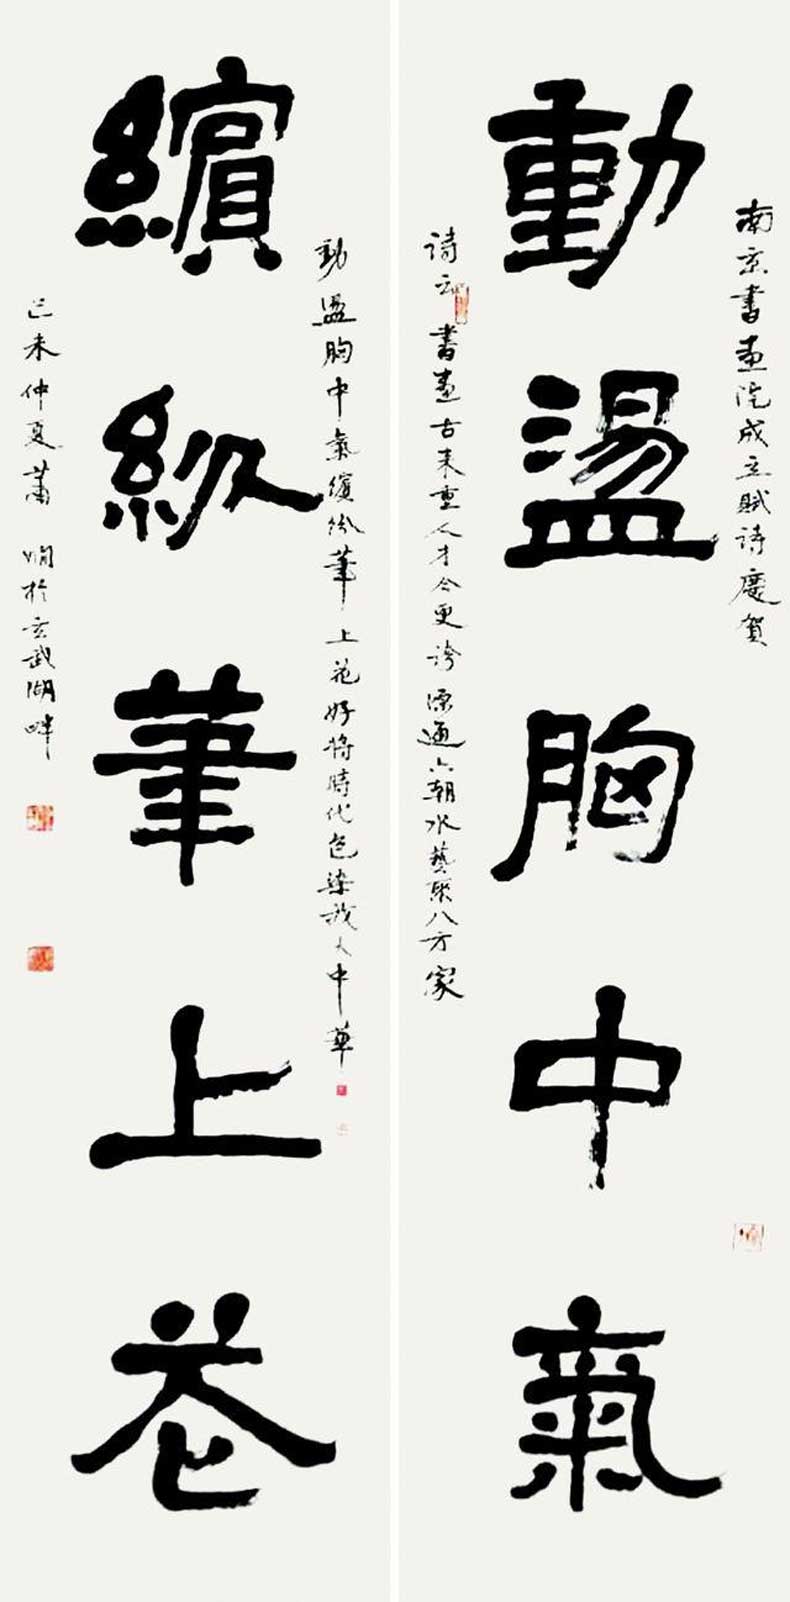 南京書畫院成立賦詩慶賀
動盪胸中氣
詩云書畫古来重人才今更誇源通六朝水藝聚八方家
動盪胸中氣繽紛筆上花好將時代色染我大中華
繽紛筆上花
己未仲夏蕭嫻於玄武湖畔